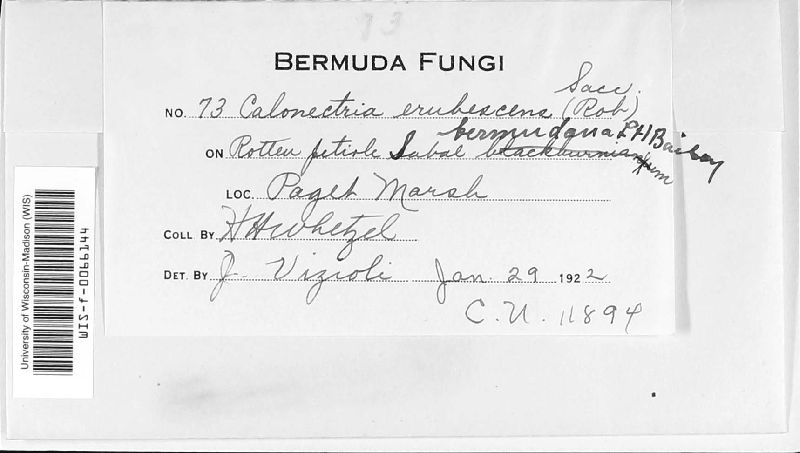 73
BERMUDA FUNGI
Sacc.
NO. 73 Calonectria erubescens (Rob)
bermudana L H Bailey
ON Rotten petiole Sabal blackburnianum
LOC. Paget Marsh
COLL BY H H Whetzel
DET. BY J. Vizioli Jan. 29 1922
C. U. 11894
University of Wisconsin-Madison (WIS)
WIS-f-0066144